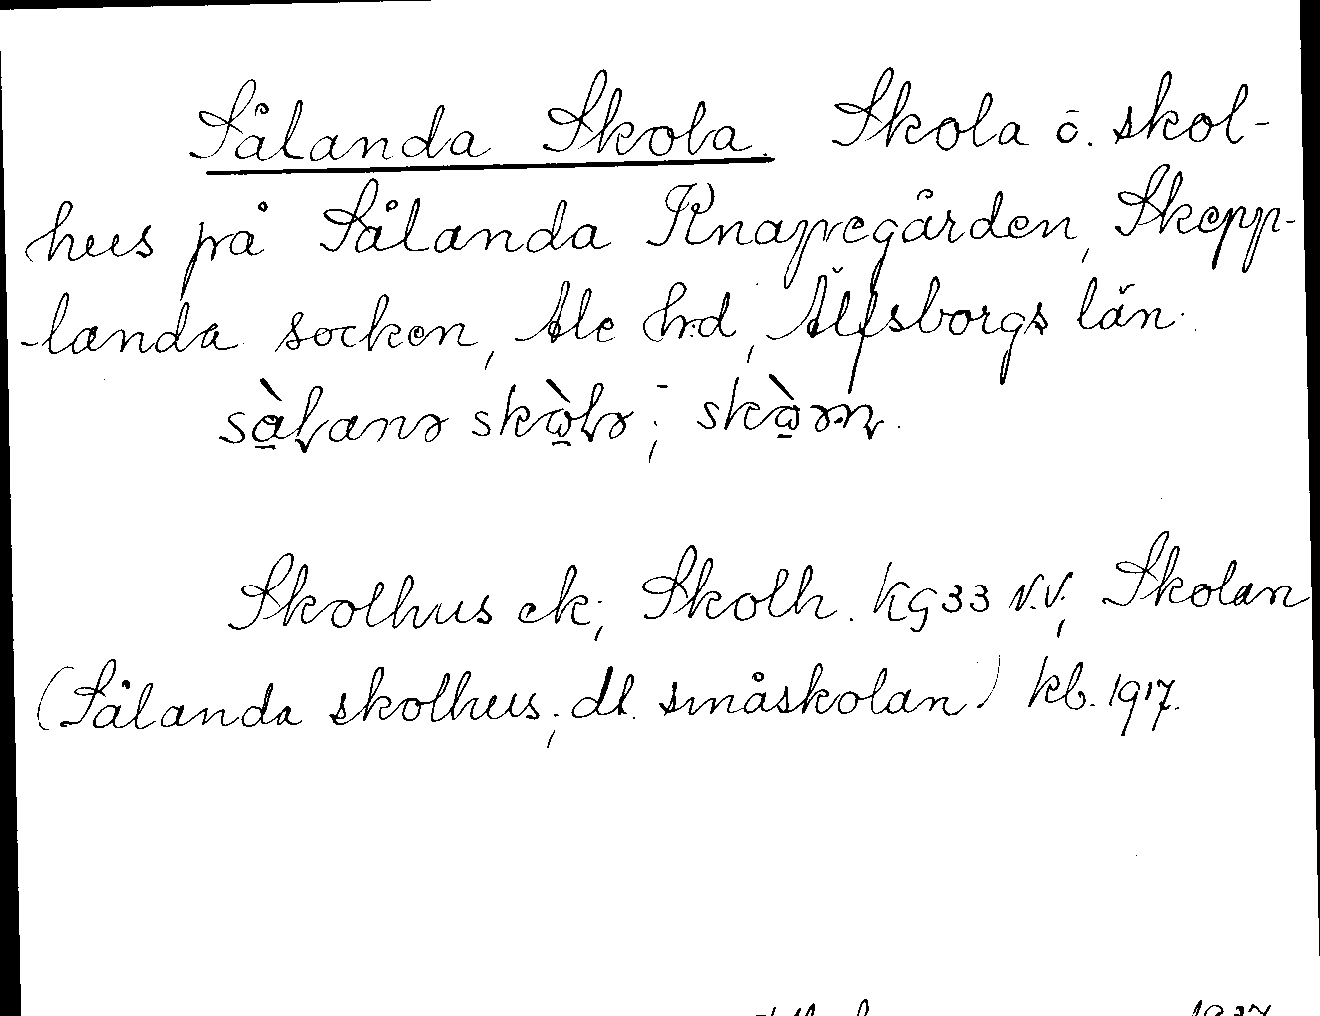 Sålanda Skola. Skola o. skol-
hus på Sålanda Knapegården, Skepp-
-landa socken, Ale hrd, Älfsborgs län.
Skolhus ek; Skolh. KG33 N.V; Skolan
(Sålanda skolhus; dl. småskolan) kb. 1917.
1937